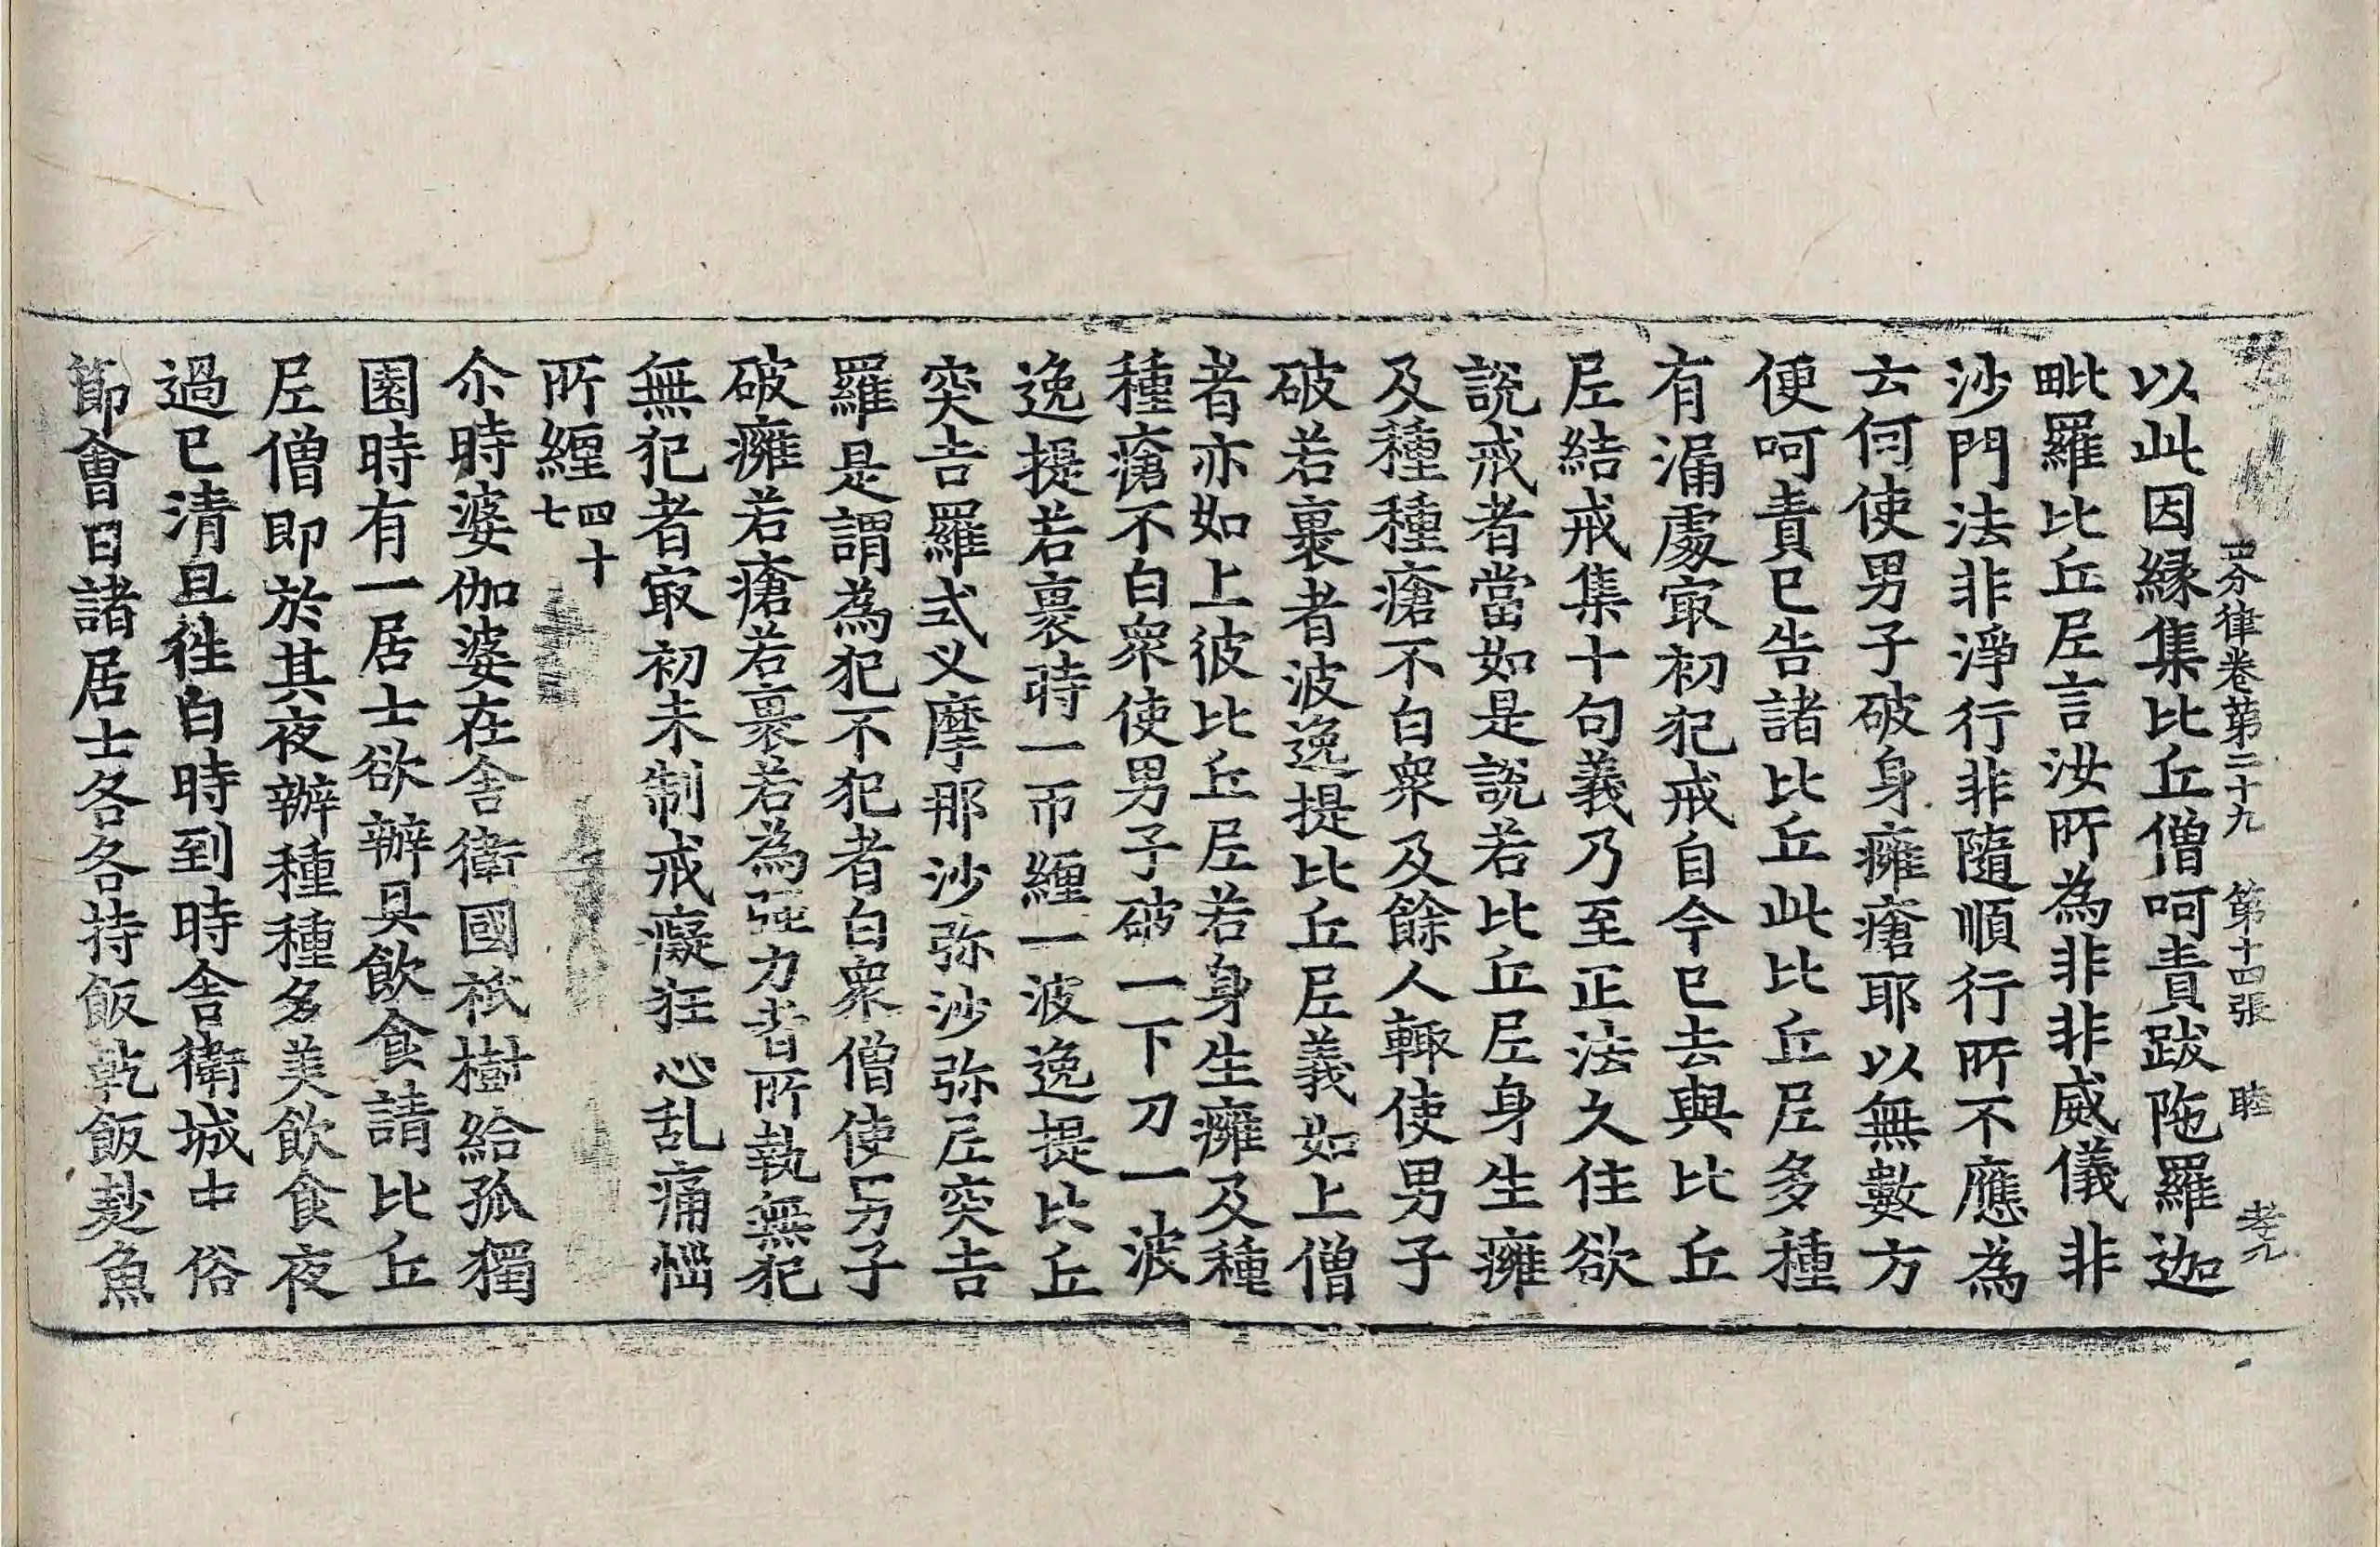 四分律卷第二十九　第十四張　睦
以此因縁集比丘僧呵責跋陁羅迦
毗羅比丘尼言汝所為非非威儀非
沙門法非淨行非隨順行所不應為
云何使男子破身癰瘡耶以無數方
便呵責已告諸比丘此比丘尼多種
有漏處㝡初犯戒自今已去與比丘
尼結戒集十句義乃至正法久住欲
說戒者當如是說若比丘尼身生癰
及種種瘡不白衆及餘人輙使男子
破若裹者波逸提比丘尼義如上僧
者亦如上彼比丘尼若身生癰及種
種瘡不白衆使男子破一下刀一波
逸提若裹時一帀纏一波逸提比丘
突吉羅式叉摩那沙弥沙弥尼突吉
羅是謂為犯不犯者白衆僧使男子
破癰若瘡若裹若為强力者所執無犯
無犯者㝡初未制戒癡狂心乱痛惱
所纏四十七
尒時婆伽婆在舍衛國祇樹給孤獨
園時有一居士欲辦具飲食請比丘
尼僧即於其夜辦種種多美飲食夜
過已清旦徃白時到時舍衛城中俗
節會日諸居士各各持飯乾飯麨魚